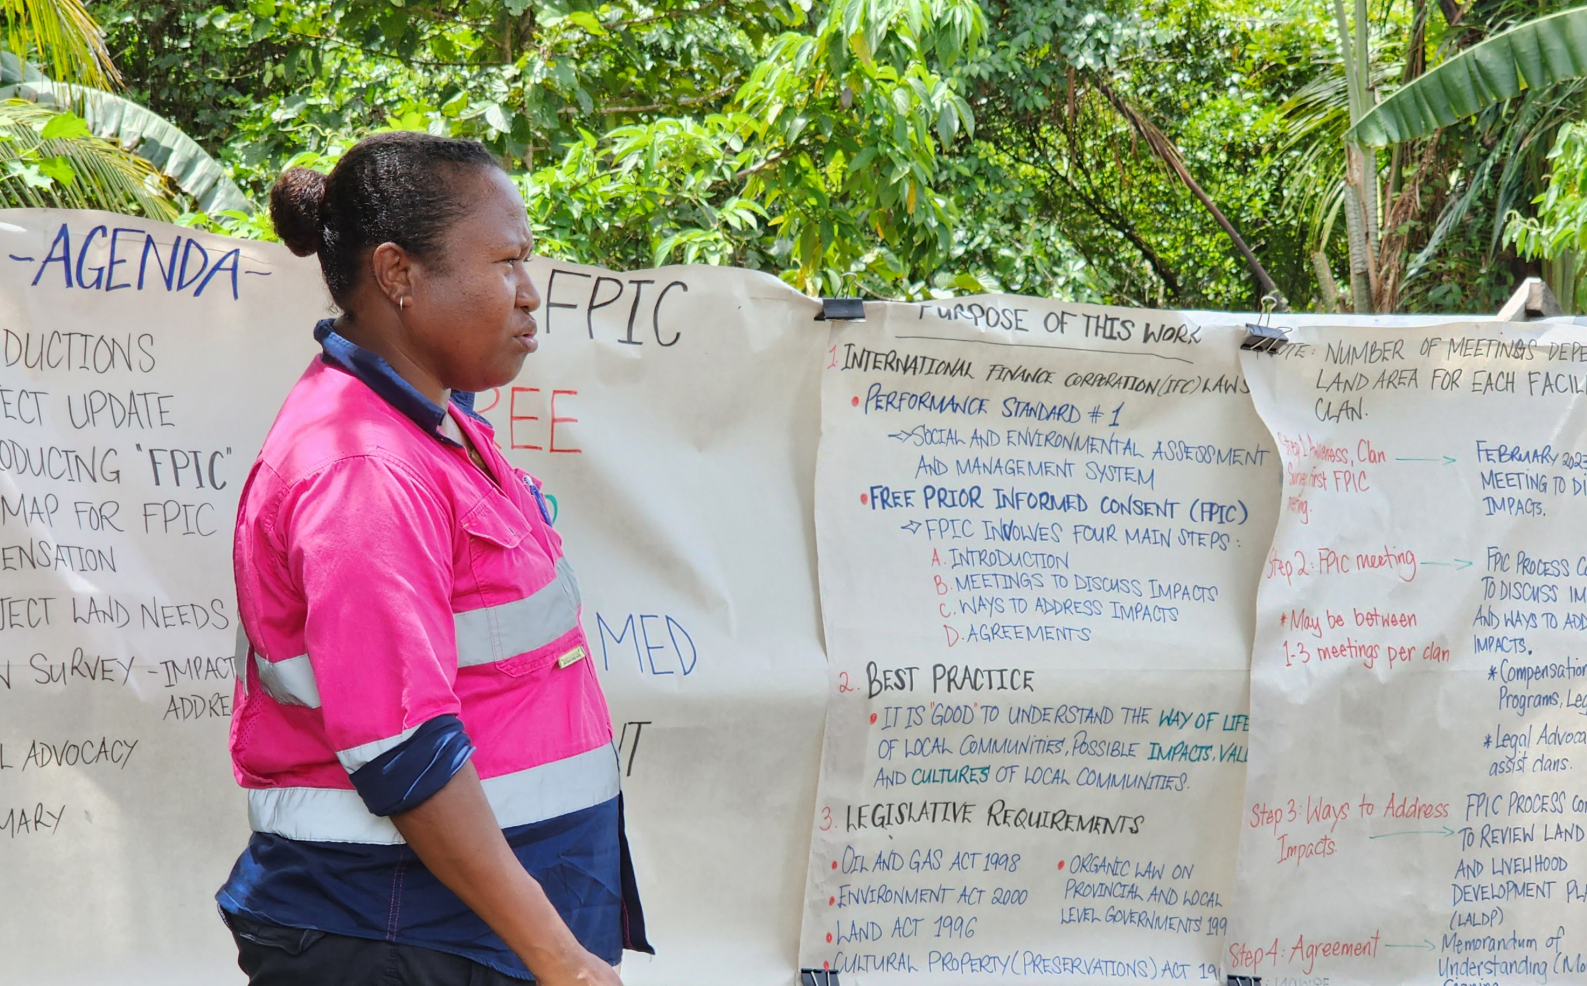 -AGENDA-
DUCTIONS
ECT UPDATE
ODUCING "FPIC"
MAP FOR FPIC
ENSATION
JECT LAND NEEDS
N SURVEY - IMPACT
ADDRE
L ADVOCACY
MARY
FPIC
REE
MED
NT
PURPOSE OF THIS WORK
1. INTERNATIONAL FINANCE CORPORATION (IFC) LAWS
• PERFORMANCE STANDARD # 1
SOCIAL AND ENVIRONMENTAL ASSESSMENT
AND MANAGEMENT SYSTEM
• FREE PRIOR INFORMED CONSENT (FPIC)
FPIC INVOLVES FOUR MAIN STEPS:
A. INTRODUCTION
B. MEETINGS TO DISCUSS IMPACTS
C. WAYS TO ADDRESS IMPACTS
D. AGREEMENTS
2. BEST PRACTICE
• IT IS "GOOD" TO UNDERSTAND THE WAY OF LIFE
OF LOCAL COMMUNITIES, POSSIBLE IMPACTS, VALU
AND CULTURES OF LOCAL COMMUNITIES.
3. LEGISLATIVE REQUIREMENTS
• OIL AND GAS ACT 1998
• ENVIRONMENT ACT 2000
• LAND ACT 1996
• CULTURAL PROPERTY (PRESERVATIONS) ACT 19
• ORGANIC LAW ON
PROVINCIAL AND LOCAL
LEVEL GOVERNMENTS 199
NOTE: NUMBER OF MEETINGS DEPE
LAND AREA FOR EACH FACIL
CLAN.
Step 1 Awareness, Clan
first FPIC
FEBRUARY 2023
MEETING TO DI
IMPACTS.
Step 2: FPIC meeting
*May be between
1-3 meetings per clan
FPIC PROCESS CO
TO DISCUSS IM
AND WAYS TO ADD
IMPACTS.
*Compensation
Programs, Leg
*Legal Advoca
assist clans.
Step 3: Ways to Address
Impacts
FPIC PROCESS CO
TO REVIEW LAND
AND LIVELIHOOD
DEVELOPMENT PLA
(LALDP)
Step 4: Agreement
Memorandum of
Understanding (Mo